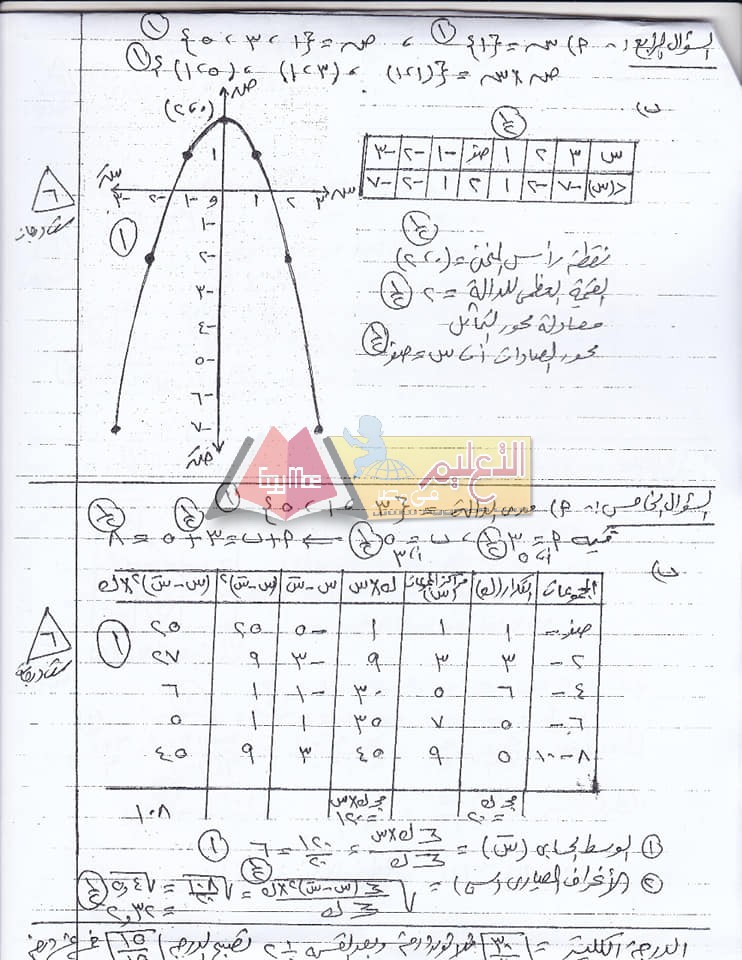 السؤال الرابع :- (٢) س = {١} ① ، ص = {١ ، ٣ ، ٥} ①
ص × س = {(١،١) ، (٣،١) ، (٥،١)} ①
ب)
½
س ٣ ٢ ١ صفر -١ -٢ -٣
د(س) -٧ -٢ ١ ٢ ١ -٢ -٧
½
نقطة رأس المنحنى = (٠،٢)
القيمة العظمى للدالة = ٢ ½
معادلة محور التماثل
محور الصادات أى س = صفر ½
ص
(٠،٢)
١
س -٣ -٢ -١ و ١ ٢ ٣ س
-١
-٢
-٣
-٤
-٥
-٦
-٧
ص
①
٦
ست درجات
التعليم فى مصر
EgyMoe
السؤال الخامس :- (٢) مدى الدالة = {٣ ، ١ ، ٥} ①
قيمة ٢ = ٣ ½ ، ب = ٥ ½ ← ٢ + ب = ٣ + ٥ = ٨ ½
أ، ٥ أ، ٣
ب)
المجموعات التكرار (ك) مراكز المجموعات (س) ك × س س - س̄ (س - س̄)٢ (س - س̄)٢ × ك
صفر - ١ ١ ١ -٥ ٢٥ ٢٥
٢ - ٣ ٣ ٩ -٣ ٩ ٢٧
٤ - ٦ ٥ ٣٠ -١ ١ ٦
٦ - ٥ ٧ ٣٥ ١ ١ ٥
٨ - ١٠ ٥ ٩ ٤٥ ٣ ٩ ٤٥
مجـ ك = ٢٠ مجـ ك × س = ١٢٠ ١٠٨
①
٦
ست درجات
① الوسط الحسابى (س̄) = مجـ ك × س / مجـ ك = ١٢٠ / ٢٠ = ٦ ①
② الانحراف المعيارى = √(مجـ (س - س̄)٢ × ك / مجـ ك) ½ = √(١٠٨ / ٢٠) = √٥,٤ ½
= ٢,٣٢
الدرجة الكلية = ٣٠ ثلاثون درجة وبعد القسمة ÷ ٢ تصبح الدرجة ١٥ خمس عشرة درجة